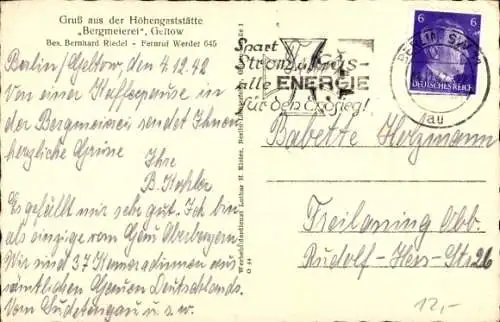 Gruß aus der Höhengaststätte
„Bergmeierei", Geltow
Bes. Bernhard Riedel - Fernruf Werder 645
Berlin/Geltow, den 4.12.42
Von einer Kaffeepause in
der Bergmeierei sendet Ihnen
herzliche Grüße
Ihre
B. Kohler
Es gefällt mir sehr gut. Ich bin
als einzige vom Gau Oberbayern.
Wir sind 37 Kameradinnen aus
sämtlichen Gauen Deutschlands.
Vom Sudetengau u.s.w.
Werbefeldbetrieb Lothar H. Küster, Berlin
O 44
Spart
Strom, Gas
alle ENERGIE
für den Endsieg!
6 6
DEUTSCHES REICH
Babette Holzmann
Freilassing Obb.
Rudolf-Hess-Str. 26
12,-